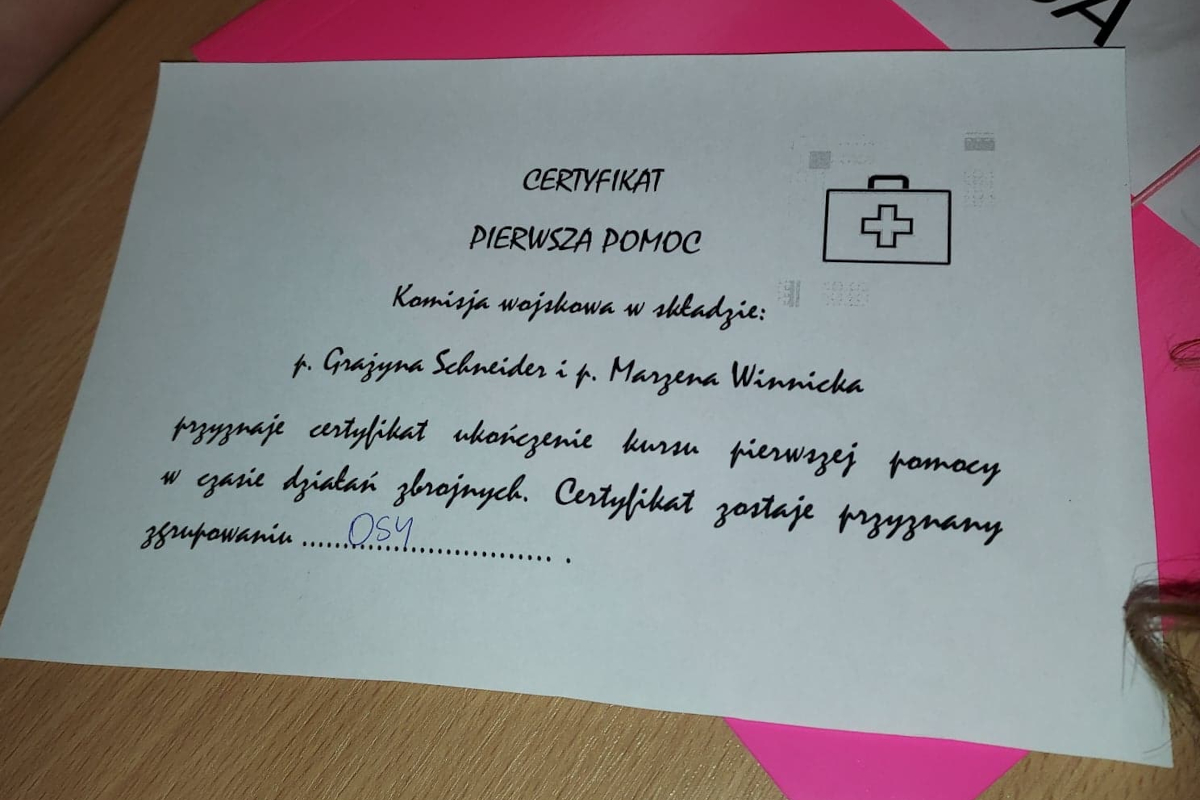 CERTYFIKAT
PIERWSZA POMOC
Komisja wojskowa w składzie:
p. Grażyna Schneider i p. Marzena Winnicka
przyznaje certyfikat ukończenie kursu pierwszej pomocy
w czasie działań zbrojnych. Certyfikat zostaje przyznany
zgrupowaniu ......OSY.......................... .